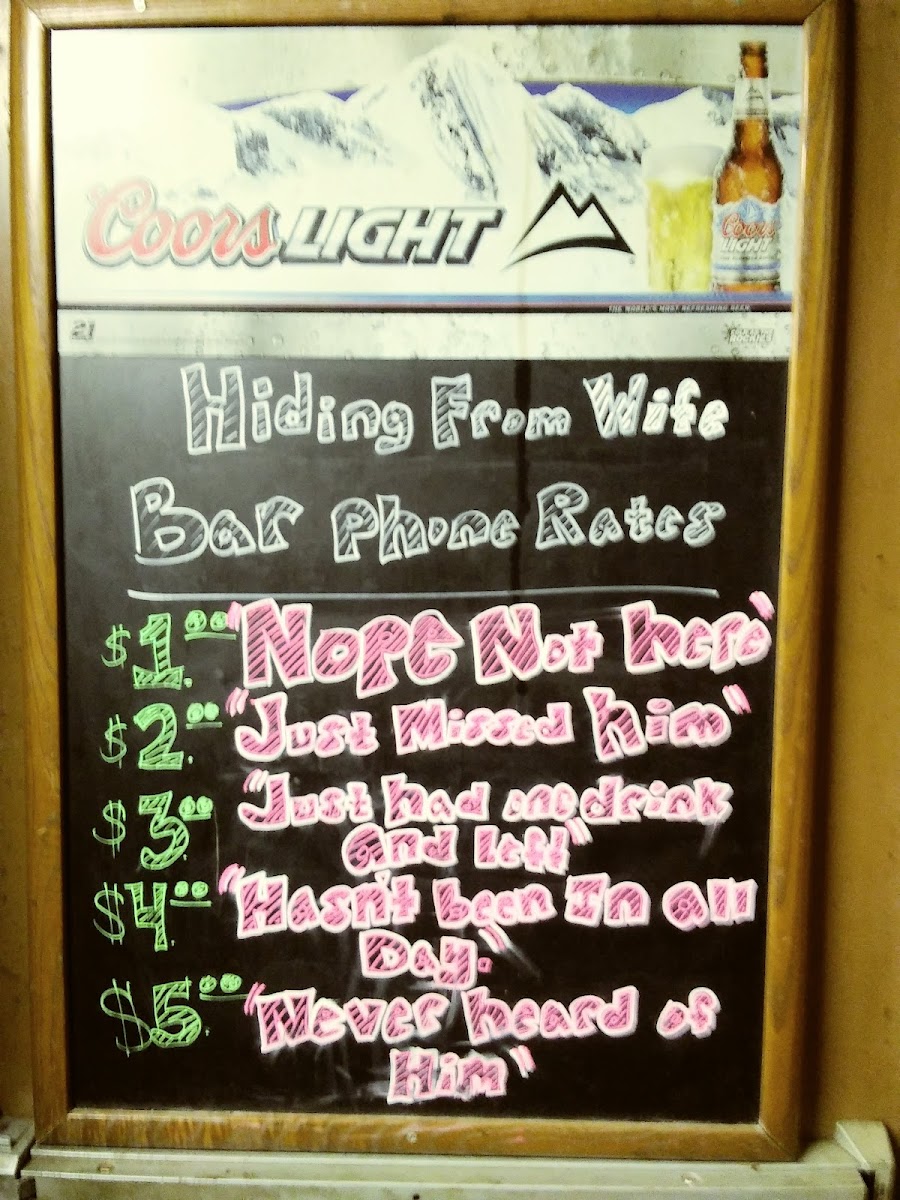 Coors LIGHT
Coors
LIGHT
THE WORLD'S MOST REFRESHING BEER
21
ROCKIES
Hiding From Wife
Bar Phone Rates
$1.00 "Nope Not here"
$2.00 "Just Missed him"
$3.00 "Just had one drink
and left"
$4.00 "Hasn't been In all
Day."
$5.00 "Never heard of
Him"